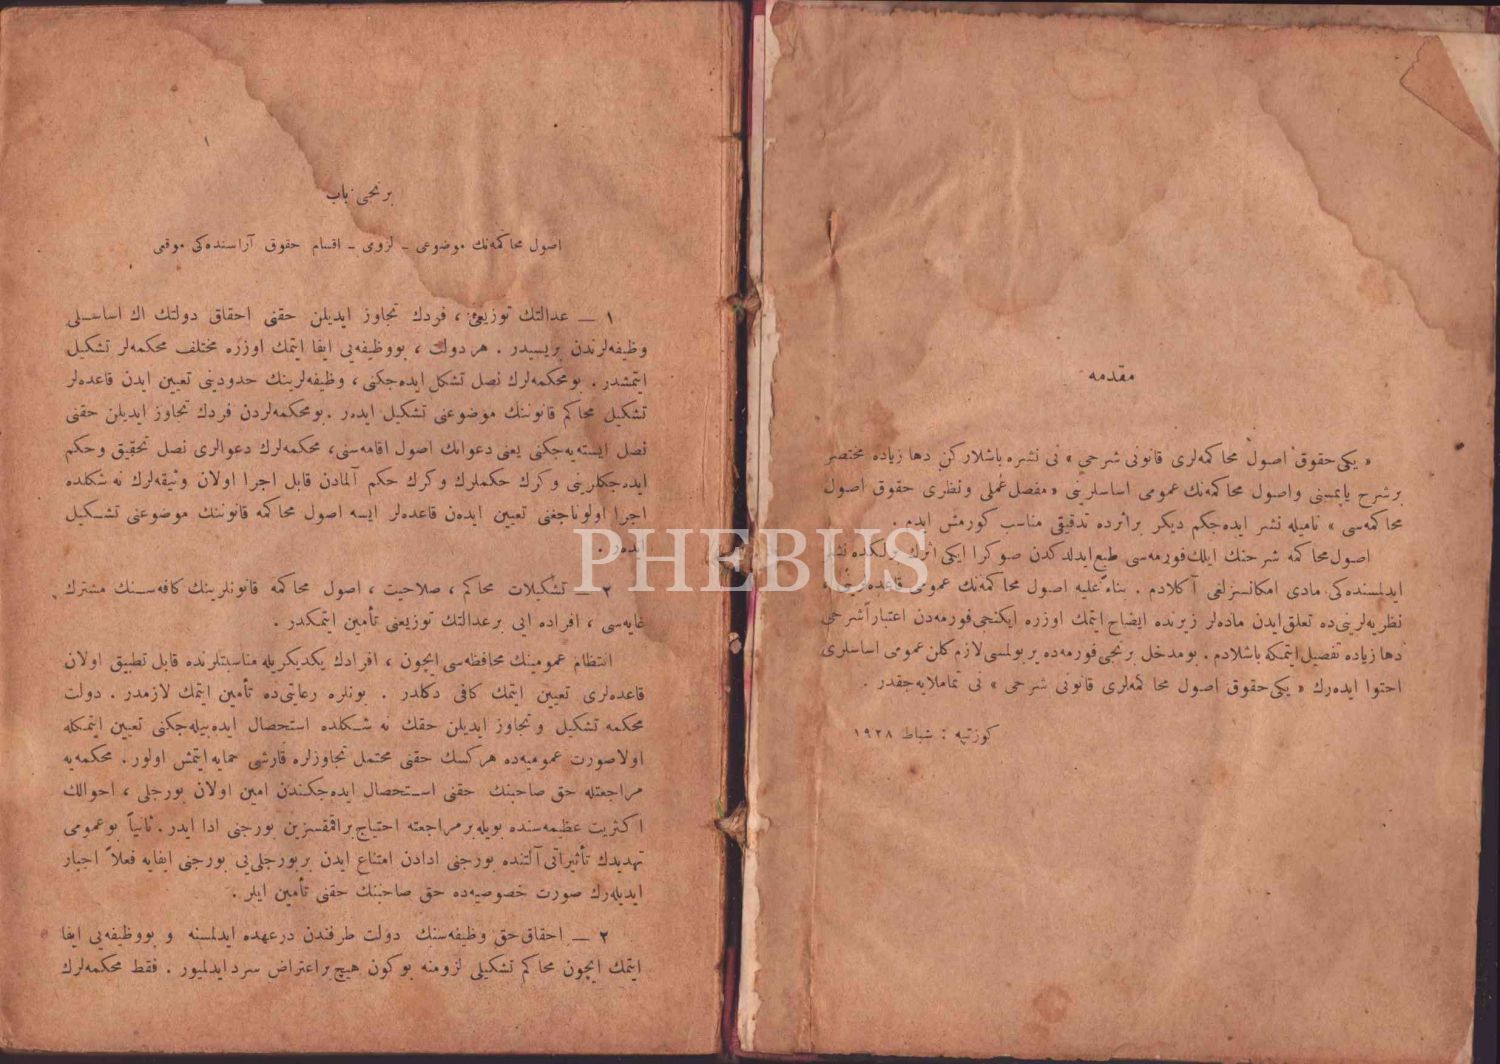 مقدمه
« یکی حقوق اصول محاکمه‌لری قانونی شرحی » نی نشره باشلارکن دها زیاده مختصر
برشرح یاپمسینی واصول محاکمه‌نك عمومی اساسلرینی « مفصل عملی ونظری حقوق اصول
محاکمه‌سی » نامیله نشر ایده‌جکم دیکر براثرده تدقیقی مناسب کورمش ایدم .
اصول محاکمه شرحنك ایلك فورمه‌سی طبع ایدلدکدن صوکرا ایکی اثرك برلکده نشر
ایدلمسنده‌کی مادی امکانسزلغی آکلادم . بناءً علیه اصول محاکمه‌نك عمومی قاعده
نظریه‌لرینی‌ده تعلق ایدن ماده‌لر زیرنده ایضاح ایتمك اوزره ایکنجی فورمه‌دن اعتباراً شرحی
دها زیاده تفصیل ایتمکه باشلادم . بومدخل برنجی فورمه‌ده یر بولمسی لازم کلن عمومی اساسلری
احتوا ایده‌رك « یکی حقوق اصول محاکمه‌لری قانونی شرحی » نی تماملایه‌جقدر .
کوزتپه : شباط ١٩٢٨
١
برنجی باب
اصول محاکمه‌نك موضوعی - لزومی - اقسام حقوق آراسنده‌کی موقعی
١ — عدالتك توزیعی ، فردك تجاوز ایدیلن حقنی احقاق دولتك اك اساسلی
وظیفه‌لرندن بریسیدر . هر دولت ، بووظیفه‌یی ایفا ایتمك اوزره مختلف محکمه‌لر تشکیل
ایتمشدر . بو محکمه‌لرك نصل تشکل ایده‌جکنی ، وظیفه‌لرینك حدودینی تعیین ایدن قاعده‌لر
تشکیل محاکم قانوننك موضوعنی تشکیل ایدر . بومحکمه‌لردن فردك تجاوز ایدیلن حقنی
نصل ایسته‌یه‌جکنی یعنی دعوانك اصول اقامه‌سنی ، محکمه‌لرك دعوالری نصل تحقیق وحکم
ایده‌جکلرینی وکرك حکملرك وکرك حکم آلمادن قابل اجرا اولان وثیقه‌لرك نه شکلده
اجرا اولوناجغنی تعیین ایده‌ن قاعده‌لر ایسه اصول محاکمه قانوننك موضوعنی تشکیل
ایده‌ر .
PHEBUS
٢ — تشکیلات محاکم ، صلاحیت ، اصول محاکمه قانونلرینك کافه‌سنك مشترك
غایه‌سی ، افراده ایی برعدالتك توزیعنی تأمین ایتمکدر .
انتظام عمومینك محافظه‌سی ایچون ، افرادك یکدیکریله مناسبتلرنده قابل تطبیق اولان
قاعده‌لری تعیین ایتمك کافی دکلدر . بونلره رعایتی‌ده تأمین ایتمك لازمدر . دولت
محکمه تشکیل و تجاوز ایدیلن حقك نه شکلده استحصال ایده‌بیله‌جکنی تعیین ایتمکله
اولا صورت عمومیه‌ده هرکسك حقنی محتمل تجاوزلره قارشی حمایه ایتمش اولور . محکمه‌یه
مراجعتله حق صاحبنك حقنی استحصال ایده‌جکندن امین اولان بورجلی ، احوالك
اکثریت عظیمه‌سنده بویله برمراجعته احتیاج براقمقسزین بورجنی ادا ایدر . ثانیاً بوعمومی
تهدیدك تأثیراتی آلتنده بورجنی ادادن امتناع ایدن بربورجلی‌یی بورجنی ایفایه فعلاً اجبار
ایدیله‌رك صورت خصوصیه‌ده حق صاحبنك حقنی تأمین ایلر .
٢ — احقاق حق وظیفه‌سنك دولت طرفندن درعهده ایدلمسنه و بووظیفه‌یی ایفا
ایتمك ایچون محاکم تشکیلی لزومنه بوکون هیچ براعتراض سرد ایدلمیور . فقط محکمه‌لرك